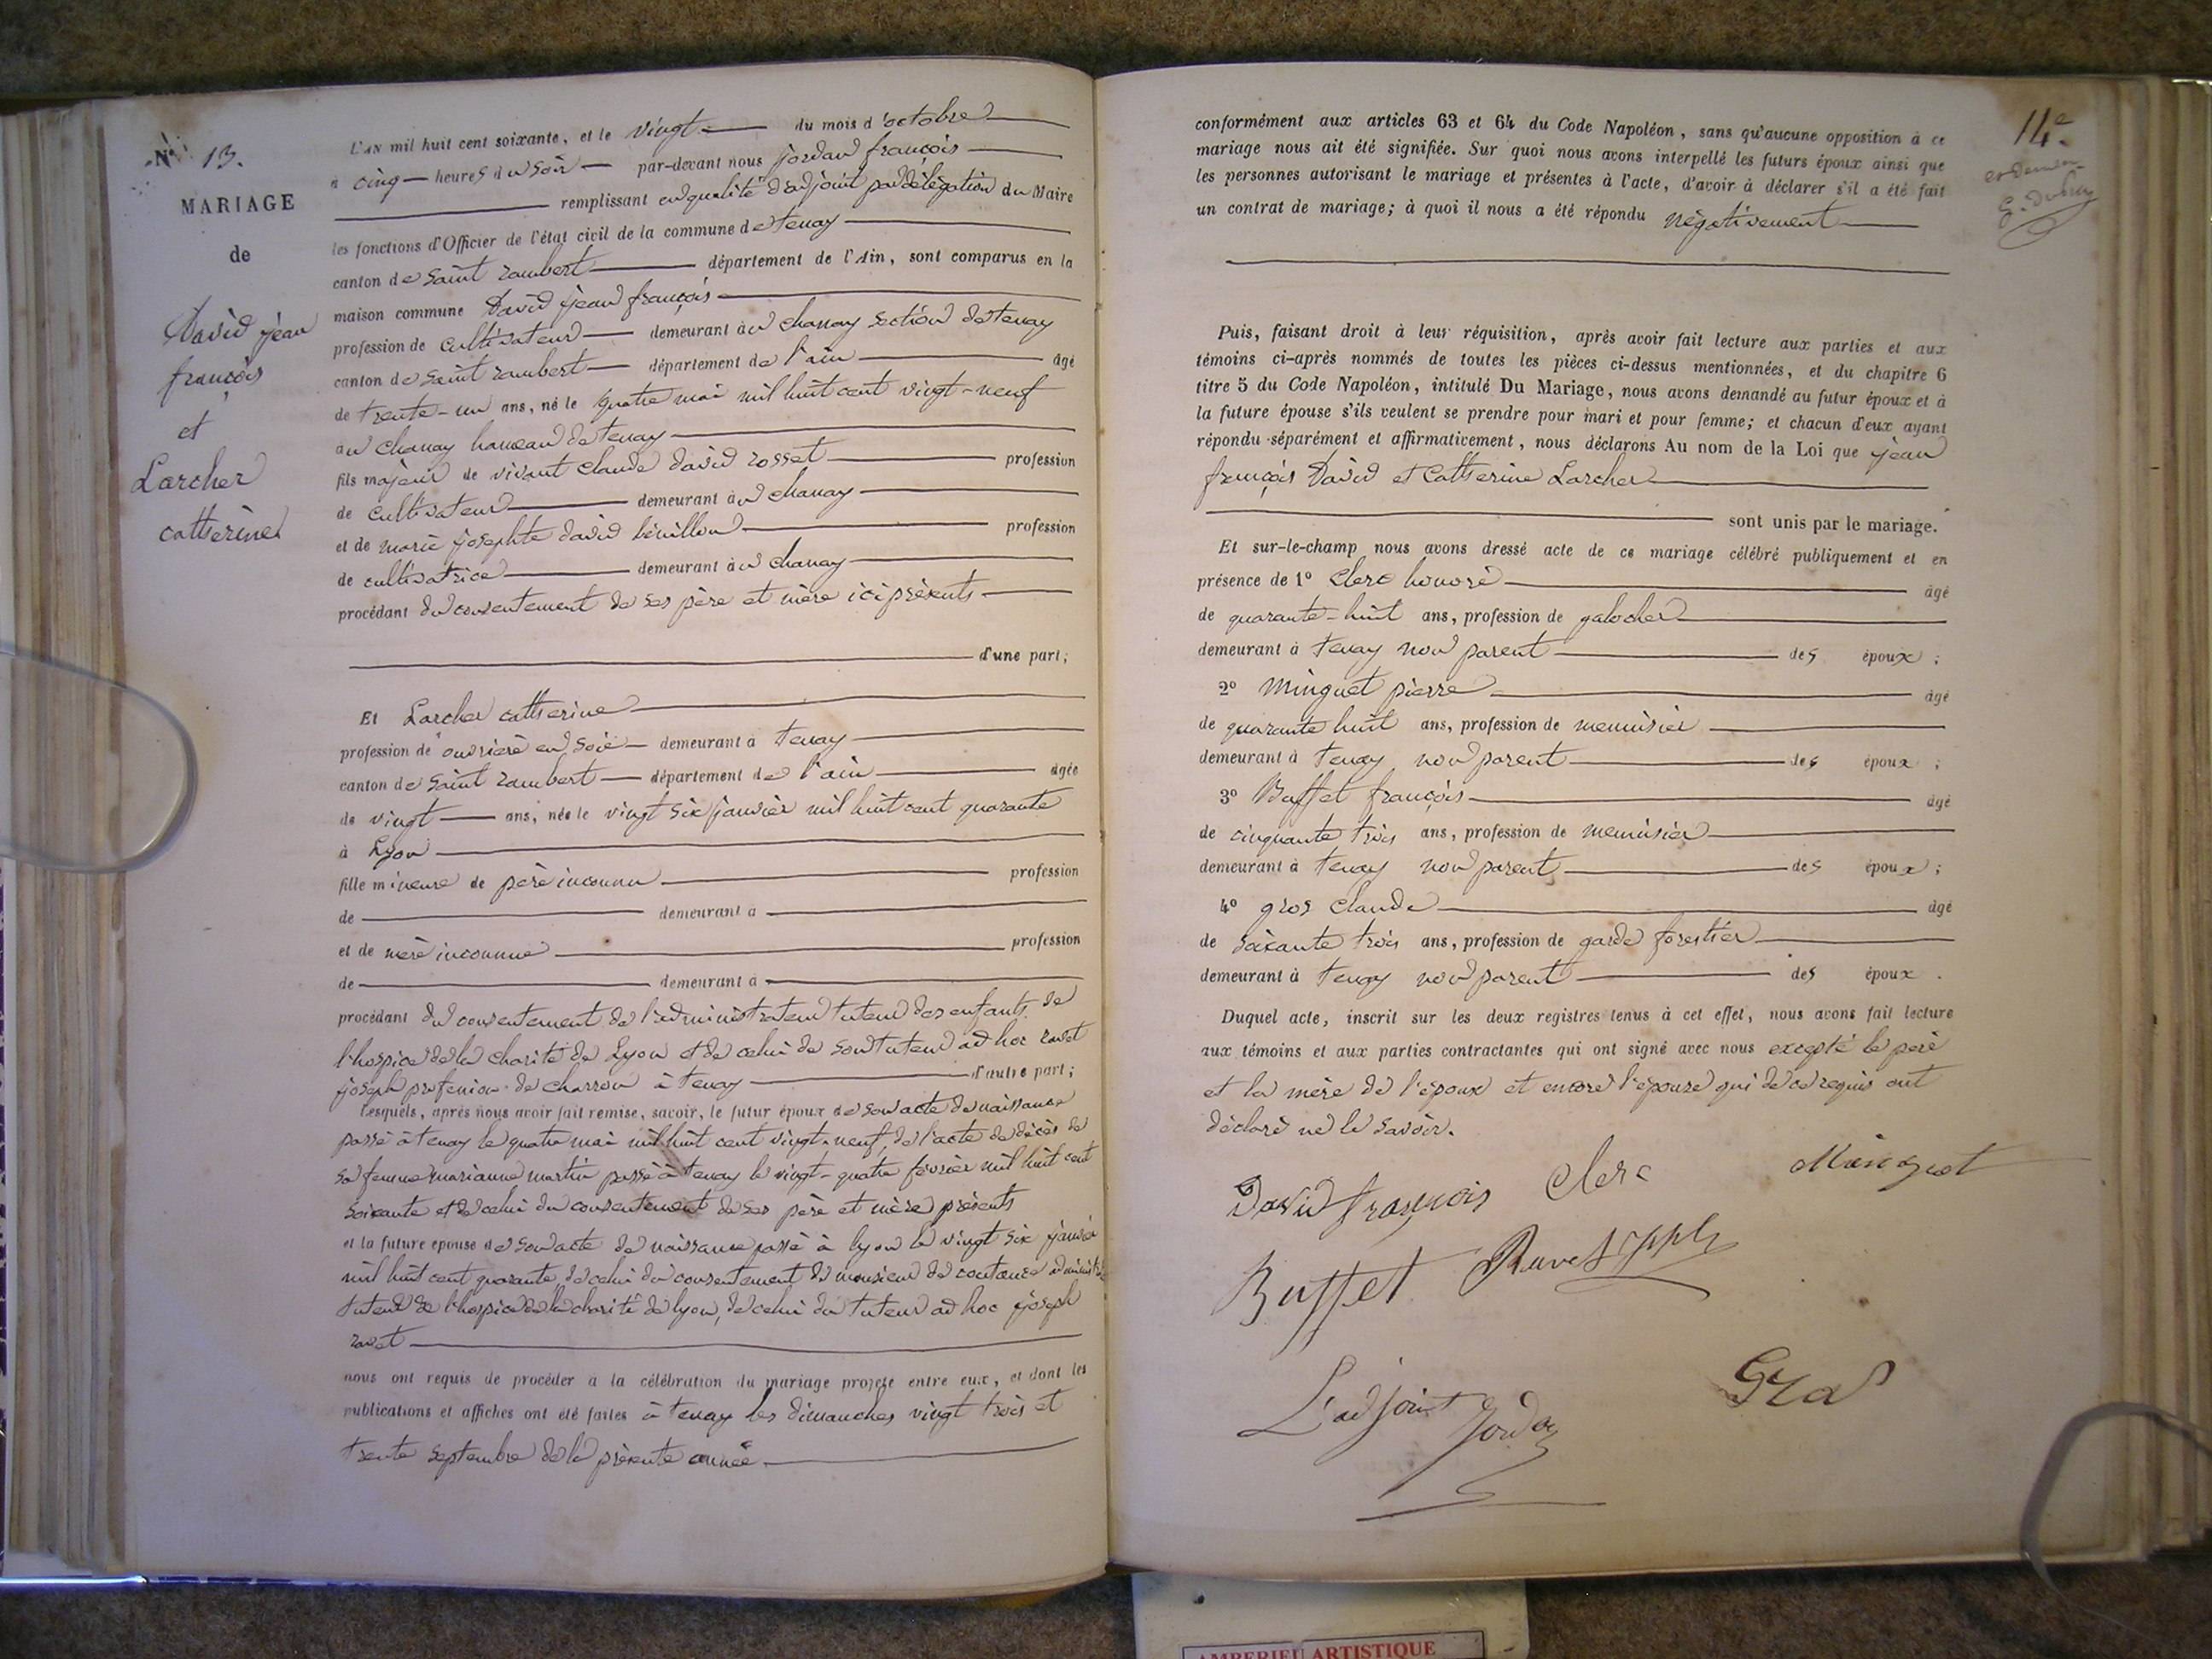 N° 13.
MARIAGE
de
David jean
françois
et
Larcher
catherine
L'AN mil huit cent soixante, et le vingt du mois d'octobre
à cinq heures du soir par-devant nous jordan françois
remplissant en qualité d'adjoint par délégation du Maire
les fonctions d'Officier de l'état civil de la commune de tenay
canton de saint rambert département de l'Ain, sont comparus en la
maison commune David jean françois
profession de cultivateur demeurant au chanay section de tenay
canton de saint rambert département de l'ain âgé
de trente-un ans, né le quatre mai mil huit cent vingt-neuf
au chanay hameau de tenay
fils majeur de vivant claude david rosset profession
de cultivateur demeurant au chanay
et de marie josephte david bévillon profession
de cultivatrice demeurant au chanay
procédant du consentement de ses père et mère ici présents
d'une part;
Et Larcher catherine
profession de ouvrière en soie demeurant à tenay
canton de saint rambert département de l'ain âgée
de vingt ans, née le vingt six janvier mil huit cent quarante
à Lyon
fille mineure de père inconnu profession
de demeurant à
et de mère inconnue profession
de demeurant à
procédant du consentement de l'administrateur tuteur des enfants de
l'hospice de la charité de Lyon et de celui de son tuteur ad hoc ravet
joseph profession de charron à tenay d'autre part;
Lesquels, après nous avoir fait remise, savoir, le futur époux de son acte de naissance
passé à tenay le quatre mai mil huit cent vingt-neuf, de l'acte de décès de
sa femme marianne martin passé à tenay le vingt-quatre février mil huit cent
soixante et de celui du consentement de ses père et mère présents
et la future épouse de son acte de naissance passé à lyon le vingt six janvier
mil huit cent quarante, de celui du consentement de monsieur de coutance
tuteur de l'hospice de la charité de lyon, de celui du tuteur ad hoc joseph
ravet
nous ont requis de procéder à la célébration du mariage projeté entre eux, et dont les
publications et affiches ont été faites à tenay les dimanches vingt trois et
trente septembre de la présente année
14e
conformément aux articles 63 et 64 du Code Napoléon, sans qu'aucune opposition à ce
mariage nous ait été signifiée. Sur quoi nous avons interpellé les futurs époux ainsi que
les personnes autorisant le mariage et présentes à l'acte, d'avoir à déclarer s'il a été fait
un contrat de mariage; à quoi il nous a été répondu négativement
Puis, faisant droit à leur réquisition, après avoir fait lecture aux parties et aux
témoins ci-après nommés de toutes les pièces ci-dessus mentionnées, et du chapitre 6
titre 5 du Code Napoléon, intitulé Du Mariage, nous avons demandé au futur époux et à
la future épouse s'ils veulent se prendre pour mari et pour femme; et chacun d'eux ayant
répondu séparément et affirmativement, nous déclarons Au nom de la Loi que jean
françois David et Catherine Larcher
sont unis par le mariage.
Et sur-le-champ nous avons dressé acte de ce mariage célébré publiquement et en
présence de 1° Clerc honoré âgé
de quarante-huit ans, profession de galocher
demeurant à tenay non parent des époux;
2° Minguet pierre âgé
de quarante huit ans, profession de menuisier
demeurant à tenay non parent des époux;
3° Buffet françois âgé
de cinquante trois ans, profession de menuisier
demeurant à tenay non parent des époux;
4° gros claude âgé
de soixante trois ans, profession de garde forestier
demeurant à tenay non parent des époux.
Duquel acte, inscrit sur les deux registres tenus à cet effet, nous avons fait lecture
aux témoins et aux parties contractantes qui ont signé avec nous excepté le père
et la mère de l'époux et encore l'épouse qui de ce requis ont
déclaré ne le savoir.
David françois Clerc Minguet
Buffet Ravet
L'adjoint Jordan
Gros
AMBERIEU ARTISTIQUE